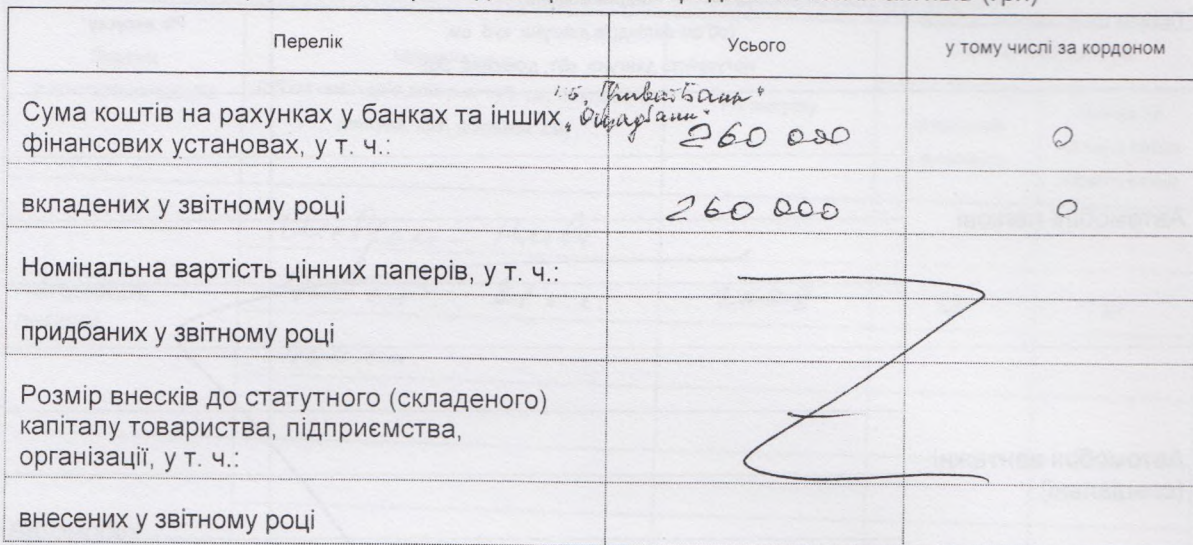 (грн)
Перелік
Усього
у тому числі за кордоном
"ПриватБанк"
Сума коштів на рахунках у банках та інших "Ощадбанк"
фінансових установах, у т. ч.:
260 000
0
вкладених у звітному році
260 000
0
Номінальна вартість цінних паперів, у т. ч.:
придбаних у звітному році
Розмір внесків до статутного (складеного)
капіталу товариства, підприємства,
організації, у т. ч.:
внесених у звітному році